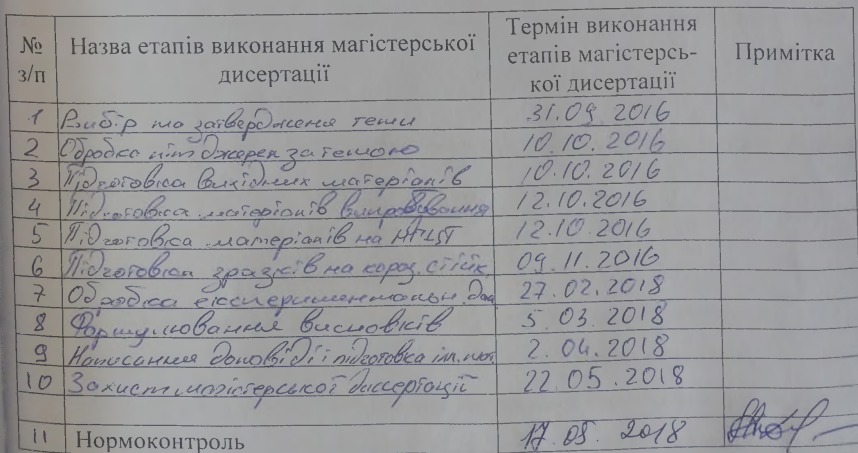 № з/п Назва етапів виконання магістерської дисертації Термін виконання етапів магістерсь-кої дисертації Примітка
1 Вибір та затвердженя теми 31.09.2016
2 Обробка літ джерел за темою 10.10.2016
3 Підготовка вихідних матеріалів 10.10.2016
4 Підготовка матеріалів випробування 12.10.2016
5 Підготовка матеріалів на 12.10.2016
6 Підготовка зразків на короз. стійк. 09.11.2016
7 Обробка експериментальн. дан 27.02.2018
8 Формулювання висновків 5.03.2018
9 Написання доповіді і підготовка 2.04.2018
10 Захист магістерської диссертації 22.05.2018
11 Нормоконтроль 17.05.2018